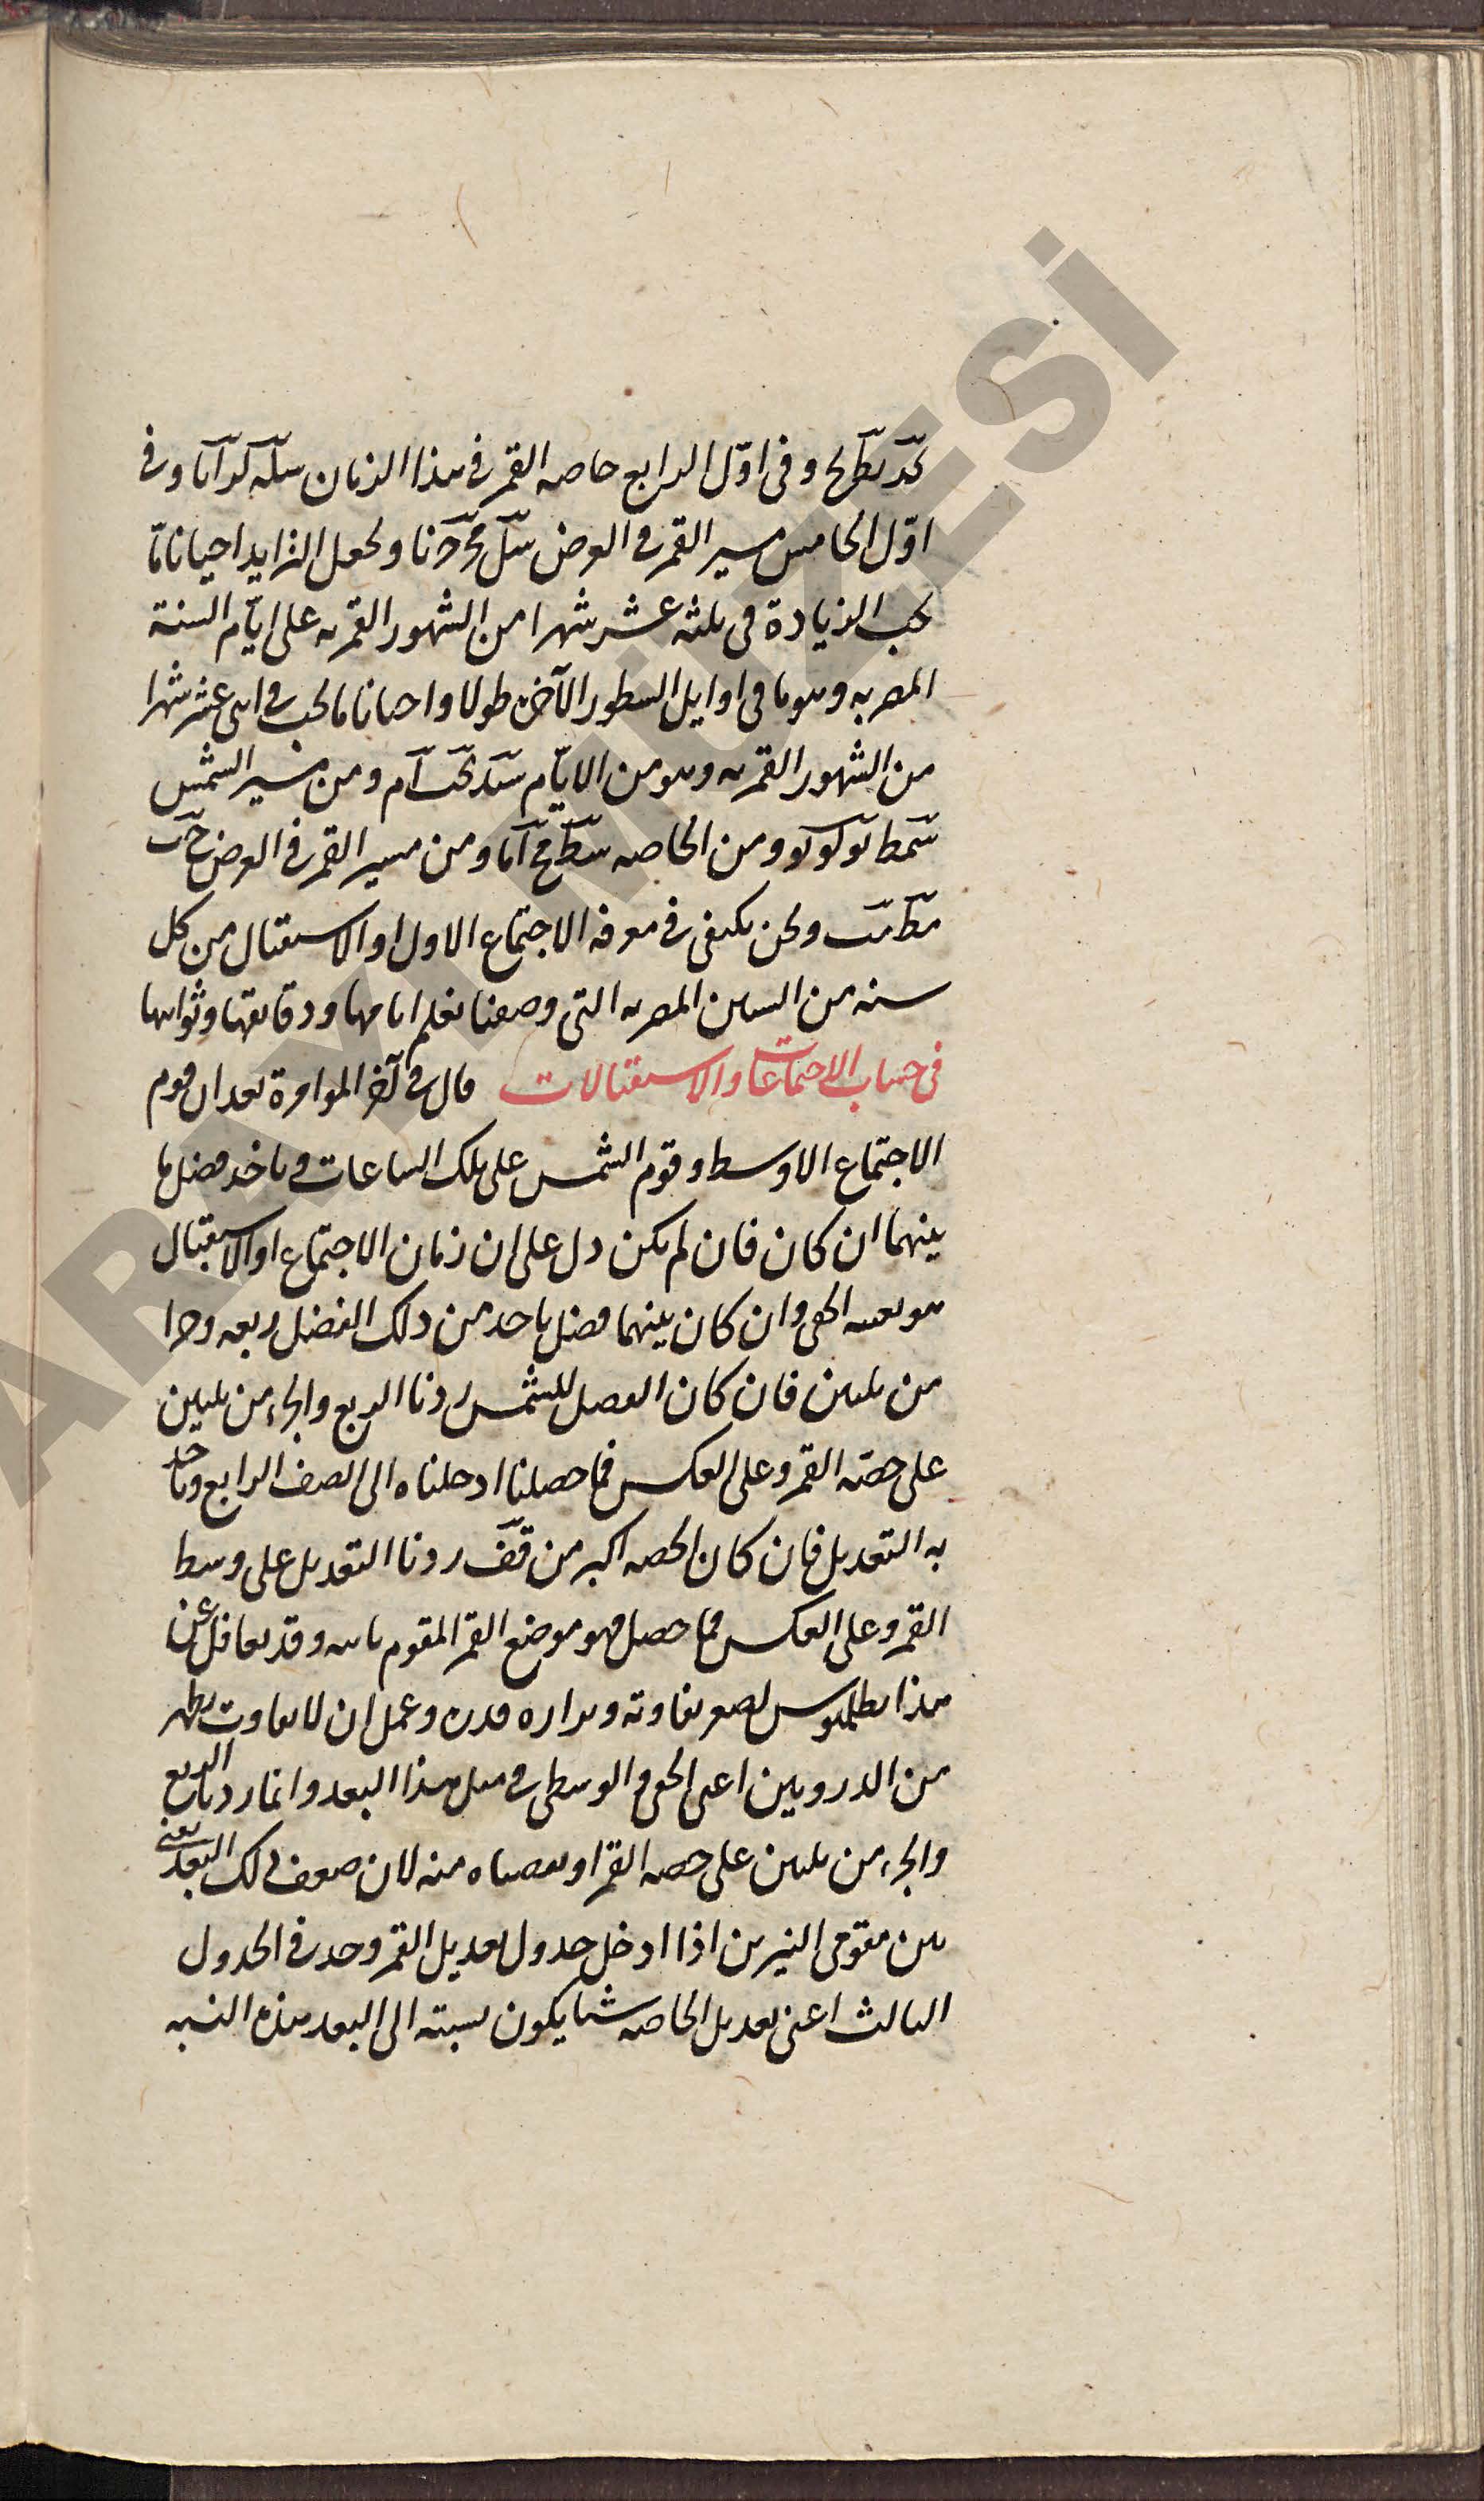 كد نط ل وفى اوّل الرابع خاصه القمر فى هذا الزمان سله كر آنا وفى
اوّل الخامس مسير القمر فى العرض سل مح نا ونجعل الزايد احيانا ما
يجب الزيادة فى ثلثه عشر شهرا من الشهور القمريه على ايّام السنة
المصريه وهو ما فى اوايل السطور الآخر طولا واحيانا ما يجب فى اثنى عشر شهرا
من الشهور القمريه وهو من الايّام ومن مسير الشمس
شمط ومن الخاصه سط ومن مسير القمر فى العرض
مط ونحن نكتفى فى معرفه الاجتماع الاول او الاستقبال من كل
سنه من السنين المصريه التى وصفنا بعلم ايامها ودقايقها وثوانيها
فى حساب الاجتماعات والاستقبالات قال فى آخر المؤامرة بعد ان قوم
الاجتماع الاوسط وقوم الشمس على تلك الساعات وناخذ فضل ما
بينهما ان كان فان لم يكن دل على ان زمان الاجتماع او الاستقبال
هو بعينه الحقى وان كان بينهما فضل ياخذ من ذلك الفضل ربعه وجزا
من ثلثين فان كان الفضل للشمس زدنا الربع والجزء من ثلثين
على حصّه القمر وعلى العكس فما حصلنا ادخلناه الى الصف الرابع وناخذ
به التعديل فان كان الحصه اكبر من قف زدنا التعديل على وسط
القمر وعلى العكس فما حصل فهو موضع القمر المقوم وقد تغافل عن
هذا بطلميوس لصغر تفاوته ونزاره قدره وعمل ان لا تفاوت يظهر
من الذروتين اعنى الحقى والوسطى فى مثل هذا البعد وانما زدنا الربع
والجزء من ثلثين على حصه القمر او نقصناه منه لان ضعف ذلك البعد يعنى
بين مقومى النيرين اذا ادخل جدول تعديل القمر وجد فى الجدول
الثالث اعنى تعديل الخاصه شيا يكون نسبته الى البعد هذه النسبه